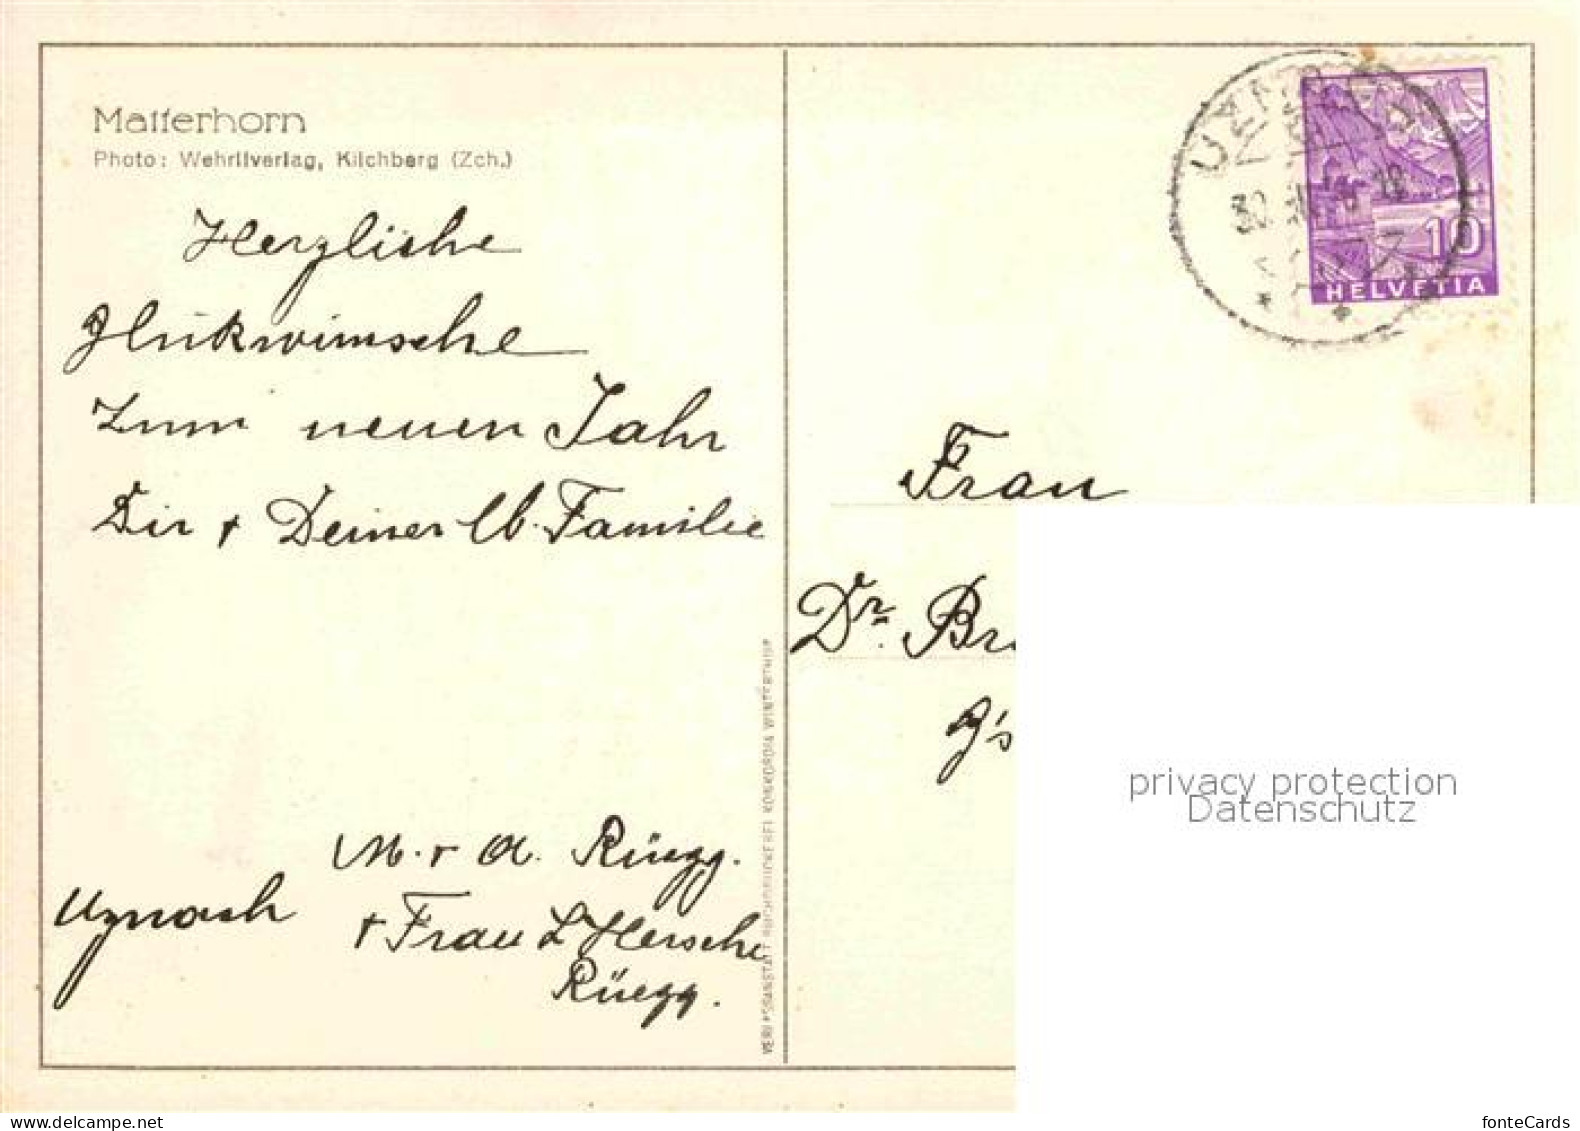 Matterhorn
Photo: Wehrliverlag, Kilchberg (Zch.)
Herzliche
Glükwünsche
Zum neuen Jahr
Dir + Deiner lb. Familie
M. + A. Rüegg.
Uznach
+ Frau L Hersche
Rüegg.
VERLAGSANSTALT BUCHDRUCKEREI KONKORDIA WINTERTHUR
10
HELVETIA
Frau
Dr. Br
G's
privacy protection
Datenschutz
fonteCards